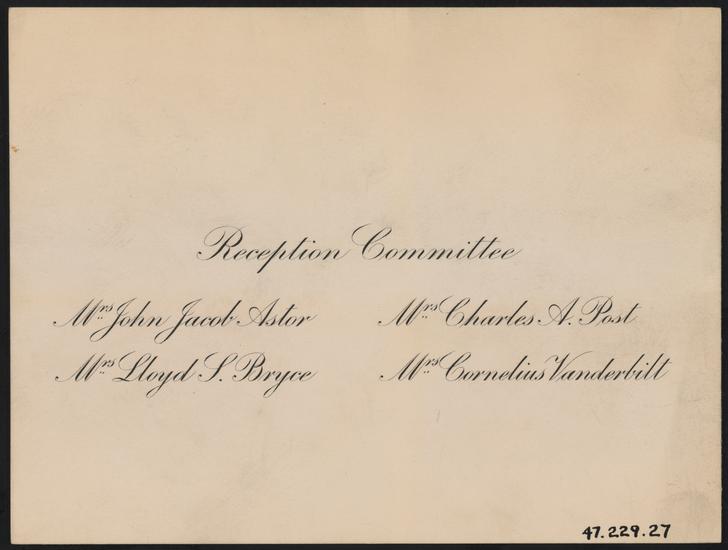 Reception Committee
Mrs John Jacob Astor Mrs Charles A. Post
Mrs Lloyd S. Bryce Mrs Cornelius Vanderbilt
47.229.27